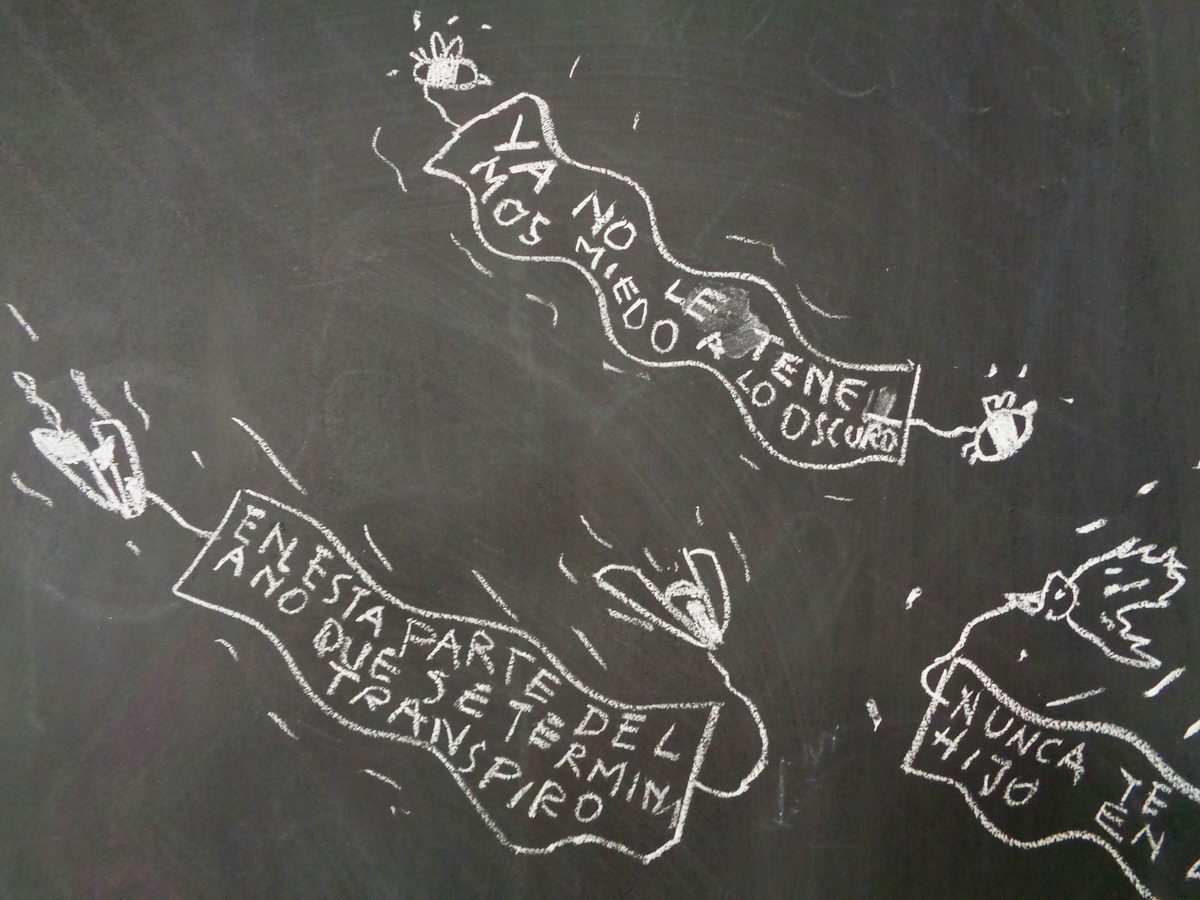 YA NO LE TENE
MOS MIEDO A LO OSCURO
EN ESTA PARTE DEL
AÑO QUE SE TERMINA
TRANSPIRO
NUNCA TE
HIJO EN